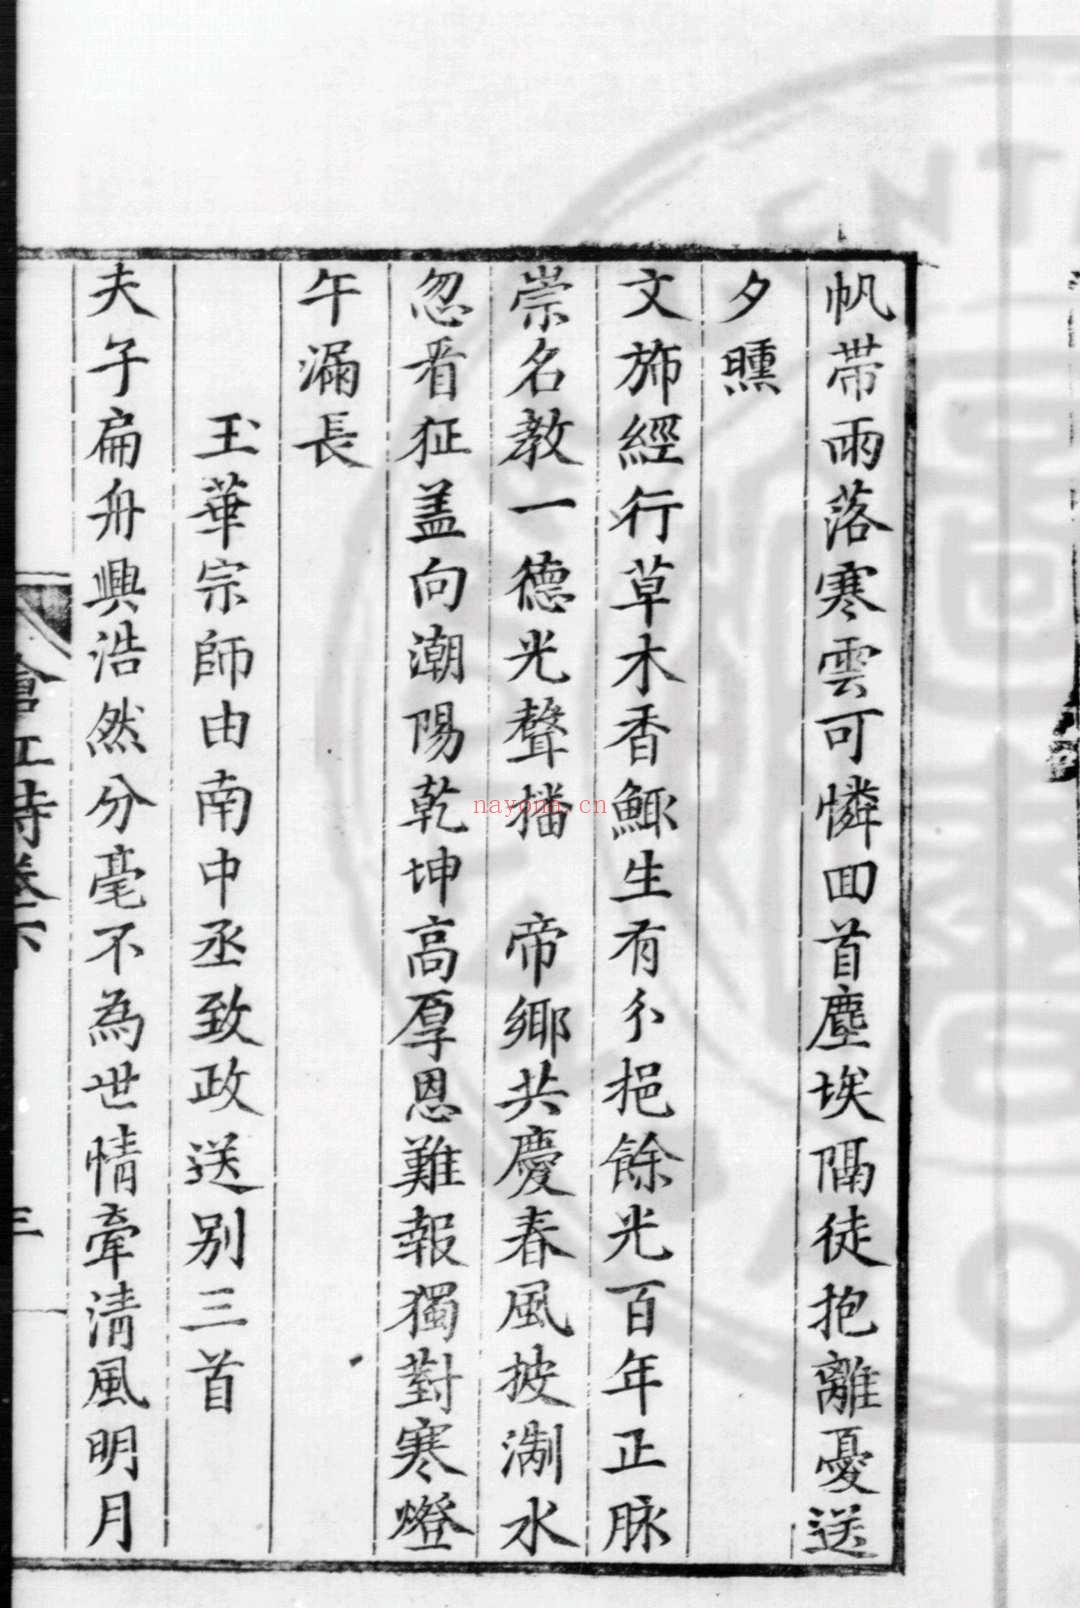 帆帶雨落寒雲可憐回首塵埃隔徒抱離憂送
夕曛
文斾經行草木香鯫生有分挹餘光百年正脉
崇名教一德光聲播　帝鄉共慶春風披淛水
忽看征盖向潮陽乾坤高厚恩難報獨對寒燈
午漏長
玉華宗師由南中丞致政送别三首
夫子扁舟興浩然分毫不為世情牽清風明月
詩卷下
三
nayona.cn